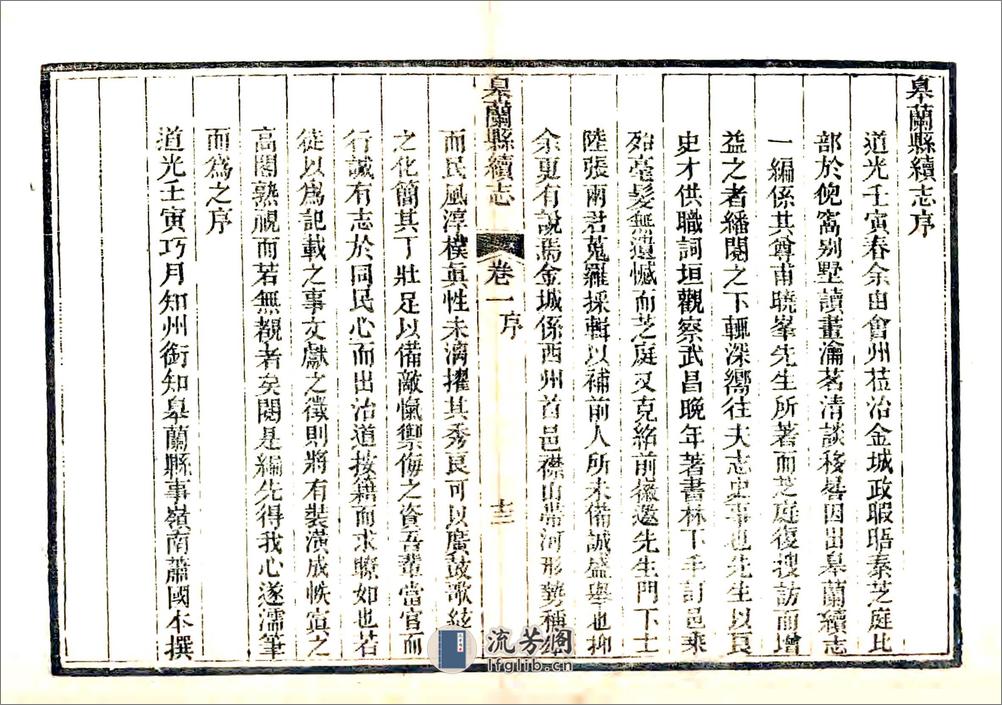 皋蘭縣續志序
道光壬寅春余由會州莅治金城政暇晤秦芝庭比
部於倪窩别墅讀畫瀹茗清談移晷因出皋蘭續志
一編係其尊甫曉峯先生所著而芝庭復搜訪而增
益之者繙閱之下輒深嚮往夫志史事也先生以良
史才供職詞垣觀察武昌晚年著書林下手訂邑乘
殆毫髮無遺憾而芝庭又克紹前徽邀先生門下士
陸張兩君蒐羅採輯以補前人所未備誠盛舉也抑
余更有說焉金城係西州首邑襟山帶河形勢稱
皋蘭縣續志 卷一 序 十二
而民風淳樸眞性未漓擢其秀良可以廣鼓歌絃
之化簡其丁壯足以備敵愾禦侮之資吾輩當官而
行誠有志於同民心而出治道按籍而求瞭如也若
徒以爲記載之事文獻之徵則將有裝潢成帙寘之
高閣熟視而若無覩者矣閱是編先得我心遂濡筆
而爲之序
道光壬寅巧月知州銜知皋蘭縣事嶺南蕭國本撰
流芳阁
lfglib.cn